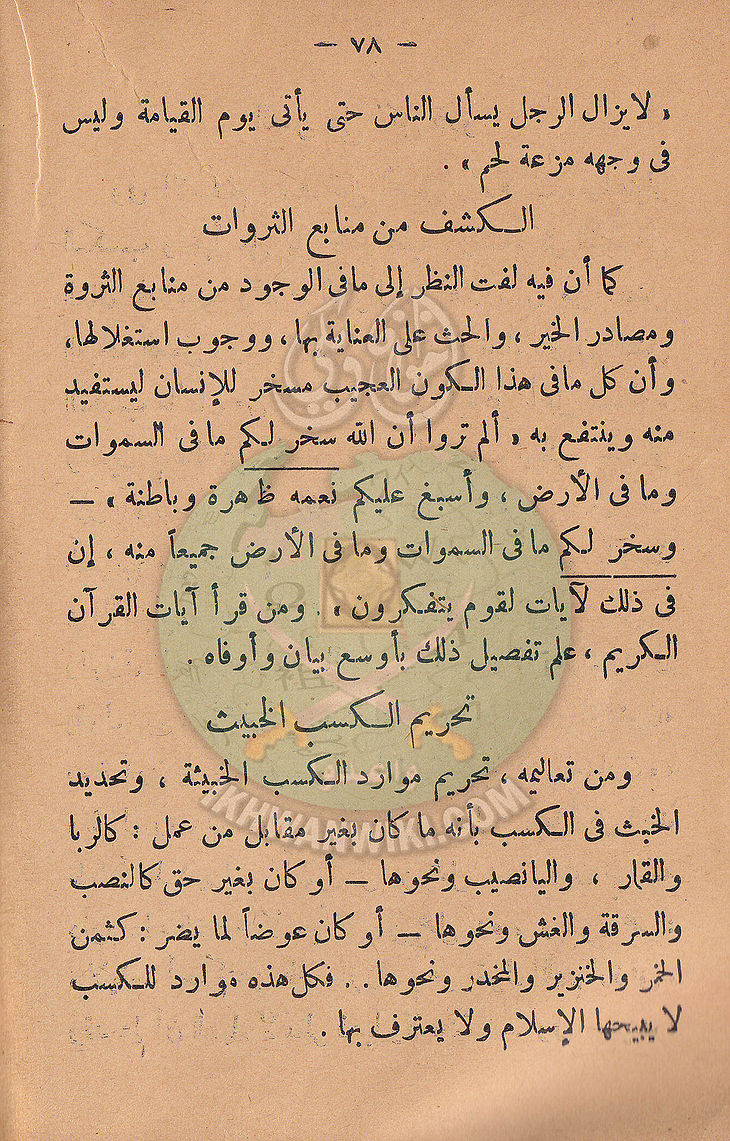 — ٧٨ —
« لا يزال الرجل يسأل الناس حتى يأتى يوم القيامة وليس
فى وجهه مزعة لحم » .
الكشف من منابع الثروات
كما أن فيه لفت النظر إلى ما فى الوجود من منابع الثروة
ومصادر الخير ، والحث على العناية بها ، ووجوب استغلالها ،
وأن كل ما فى هذا الكون العجيب مسخر للإنسان ليستفيد
منه وينتفع به « ألم تروا أن الله سخر لكم ما فى السموات
وما فى الأرض ، وأسبغ عليكم نعمه ظاهرة وباطنة » —
وسخر لكم ما فى السموات وما فى الأرض جميعاً منه ، إن
فى ذلك لآيات لقوم يتفكرون » . ومن قرأ آيات القرآن
الكريم ، علم تفصيل ذلك بأوسع بيان وأوفاه .
تحريم الكسب الخبيث
ومن تعاليمه ، تحريم موارد الكسب الخبيثة ، وتحديد
الخبث فى الكسب بأنه ما كان بغير مقابل من عمل : كالربا
والقمار ، واليانصيب ونحوها — أو كان بغير حق كالنصب
والسرقة والغش ونحوها — أو كان عوضاً لما يضر : كثمن
الخمر والخنزير والمخدر ونحوها . . فكل هذه موارد للكسب
لا يبيحها الإسلام ولا يعترف بها .
IKHWANWIKI.COM